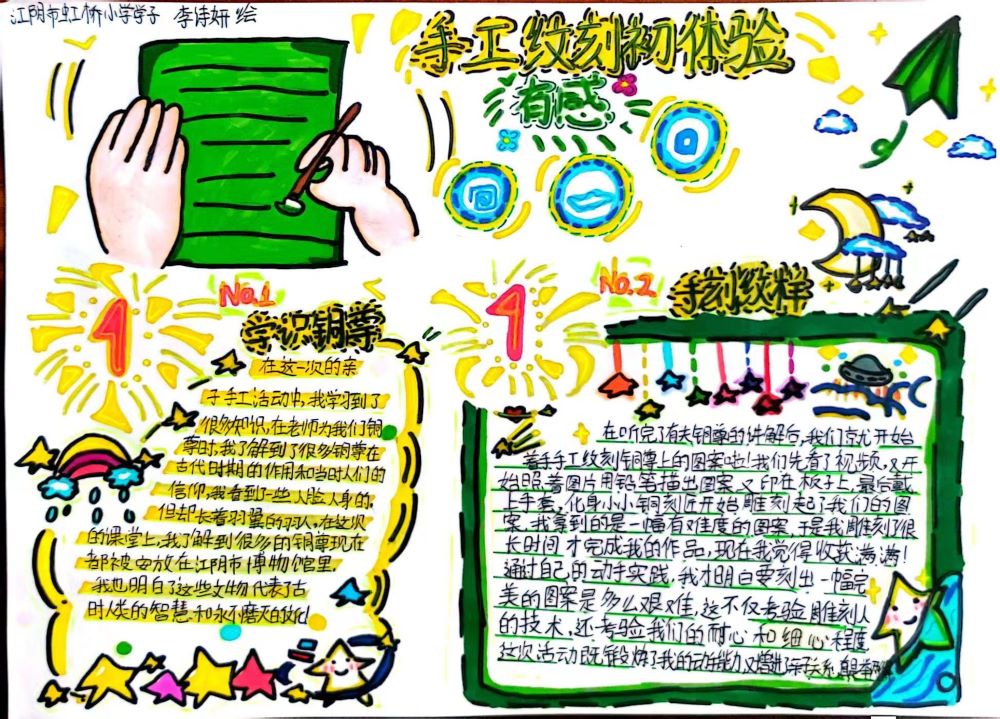 江阴市虹桥小学学子 李诗妍 绘
手工纹刻初体验
有感
No.1
1
学识铜尊
在这一次的亲
子手工活动中,我学习到了
很多知识,在老师为我们铜
尊时,我了解到了很多铜尊在
古代时期的作用和当时人们的
信仰,我看到了一些人脸人身的,
但却长着羽翼的羽人,在这次
的课堂上,我了解到很多的铜尊现在
都被安放在江阴市博物馆里,
我也明白了这些文物代表了古
时人类的智慧和永不磨灭的
No.2
1
手刻纹样
在听完了有关铜尊的讲解后,我们就开始
着手手工纹刻铜尊上的图案啦!我们先看了视频,又开
始照着图片用铅笔描出图案,又印在板子上,最后戴
上手套,化身小小铜刻匠开始雕刻起了我们的图
案,我拿到的是一幅有难度的图案,于是我雕刻了很
长时间才完成我的作品,现在我觉得收获满满!
通过自己的动手实践,我才明白要刻出一幅完
美的图案是多么艰难,这不仅考验雕刻人
的技术,还考验我们的耐心和细心程度
这次活动既锻炼了我的动手能力,又增进了亲子关系,